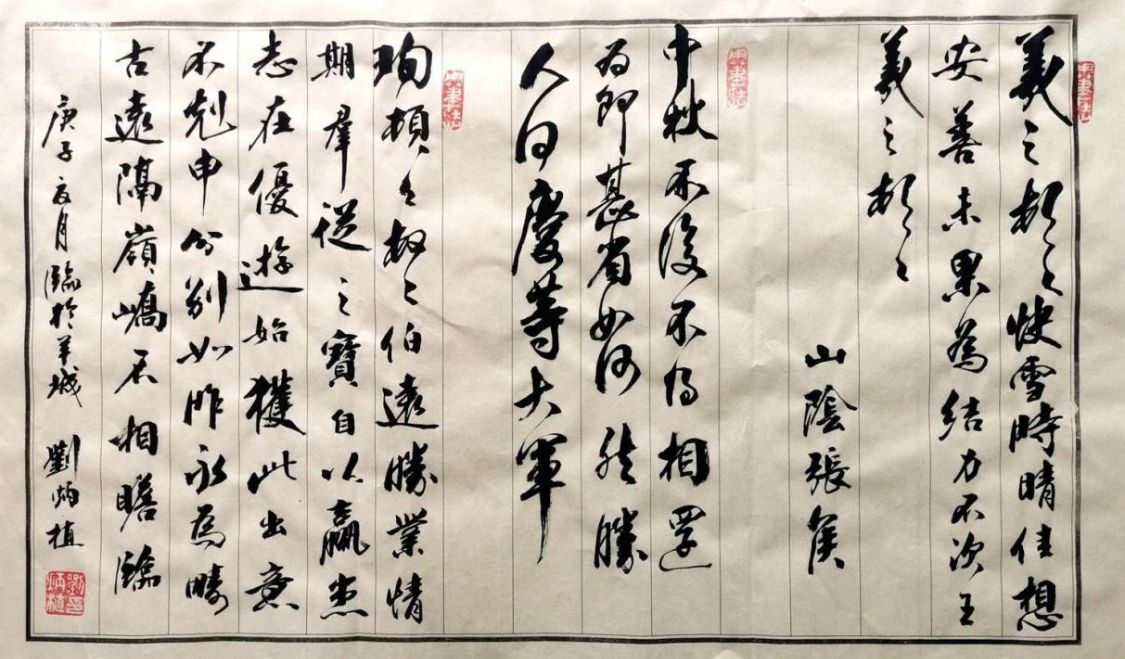 羲之頓首快雪時晴佳想
安善未果為結力不次王
羲之頓首
山陰張侯
中秋不復不得相還
為即甚省如何然勝
人何慶等大軍
珣頓首頓首伯遠勝業情
期羣從之寶自以羸患
志在優遊始獲此出意
不剋申分別如昨永為疇
古遠隔嶺嶠不相瞻臨
庚子夏月臨於羊城 劉炳植